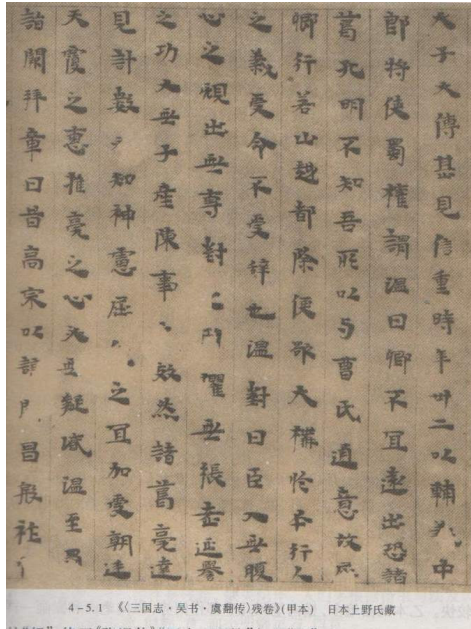 太子太傅甚見信重時年卅二以輔義中
郎將使蜀權謂温曰卿不宜遠出恐諸
葛孔明不知吾所以与曹氏通意故屈
卿行若山越都除便欲大構於丕行人
之義受命不受辞也温對曰臣入無腹
心之規出無專對之用懼無張老延譽
之功又無子産陳事之效然諸葛亮達
見計數知神慮屈之宜加受朝廷
天覆之惠推亮之心必無疑貳温至蜀
詣闕拜章曰昔高宗以諒昌殷祚
4-5.1 《〈三国志·吴书·虞翻传〉残卷》(甲本) 日本上野氏藏